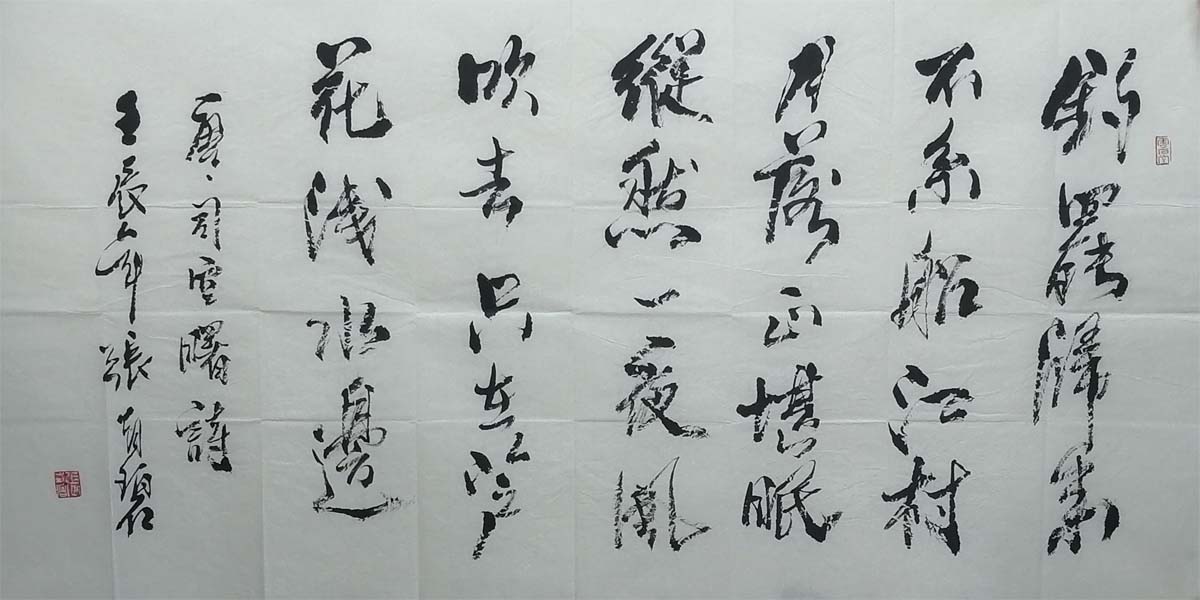 釣罷歸来
不系船江村
月落正堪眠
縱然一夜風
吹去只在芦
花淺水邊
唐司空曙詩
壬辰年張碧